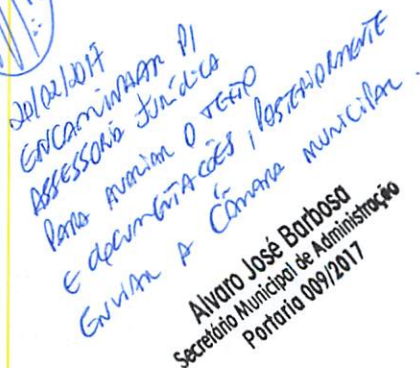 20/02/2017
ENCAMINHAR P/
ASSESSORIA JURÍDICA
PARA AVALIAR O TEXTO
E DOCUMENTAÇÕES, POSTERIORMENTE
ENVIAR A CÂMARA MUNICIPAL.
Alvaro José Barbosa
Secretário Municipal de Administração
Portaria 009/2017